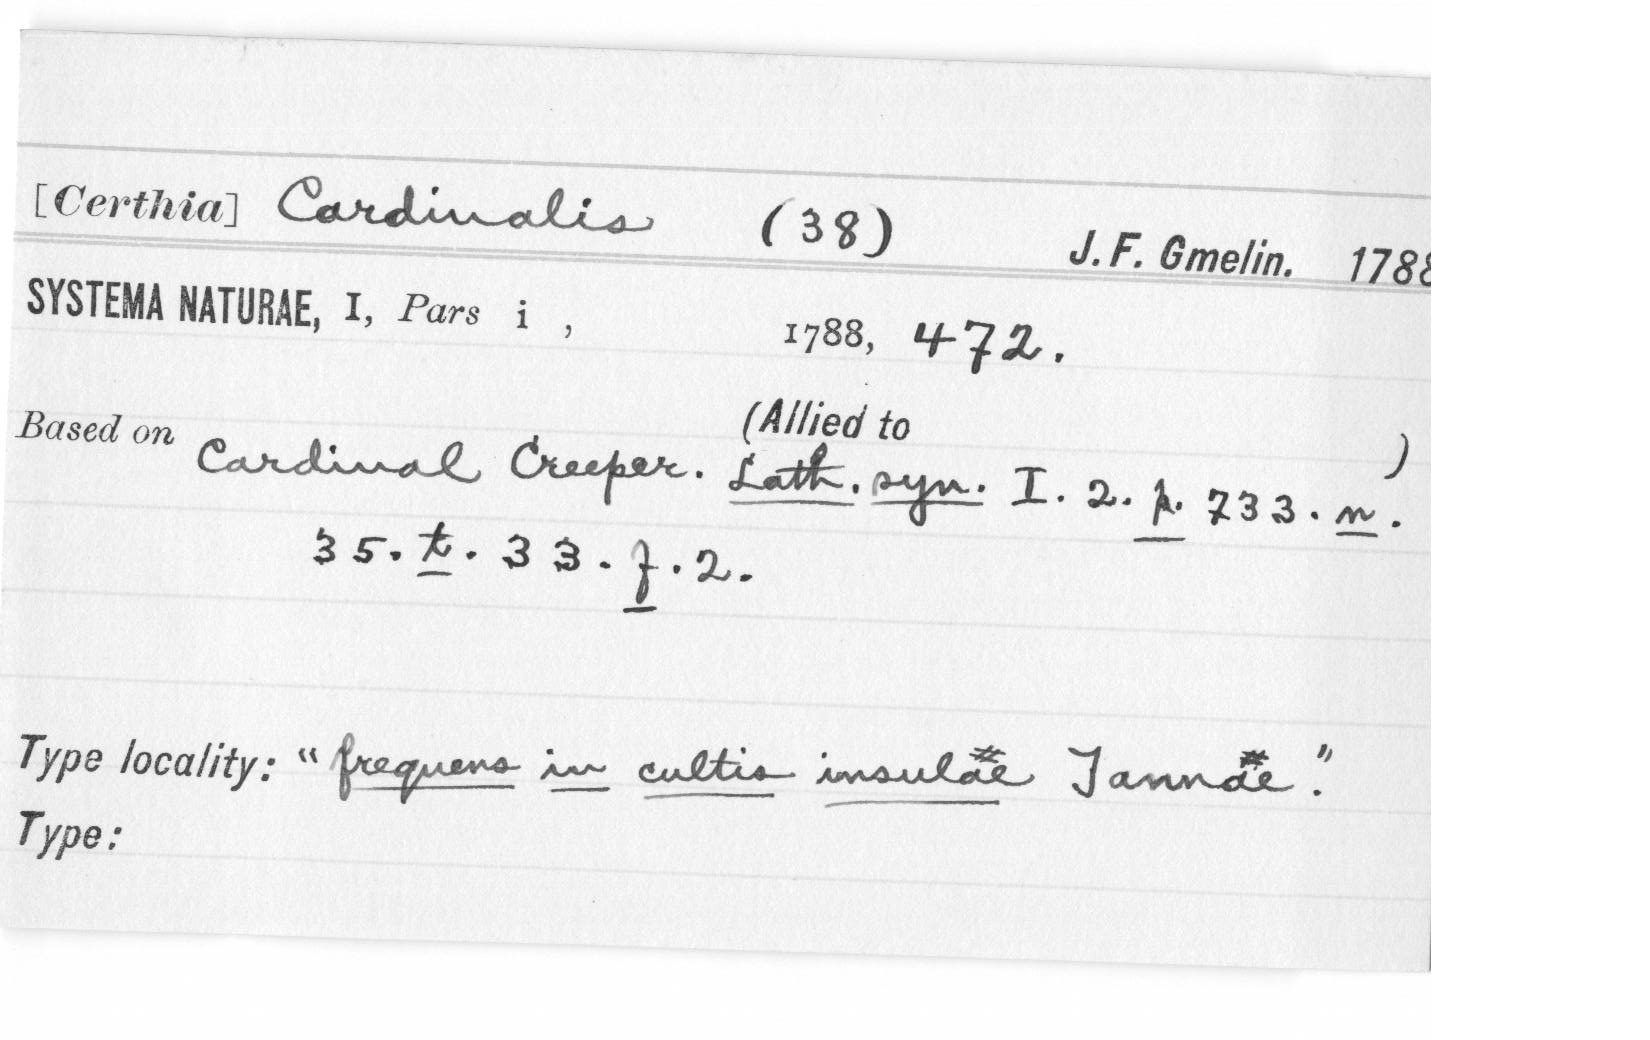 [Certhia] Cardinalis (38) J. F. Gmelin. 1788
SYSTEMA NATURAE, I, Pars i , 1788, 472.
(Allied to )
Based on Cardinal Creeper. Lath. syn. I. 2. p. 733. n.
35. t. 33. f. 2.
Type locality: "frequens in cultis insulæ Tannæ."
Type: